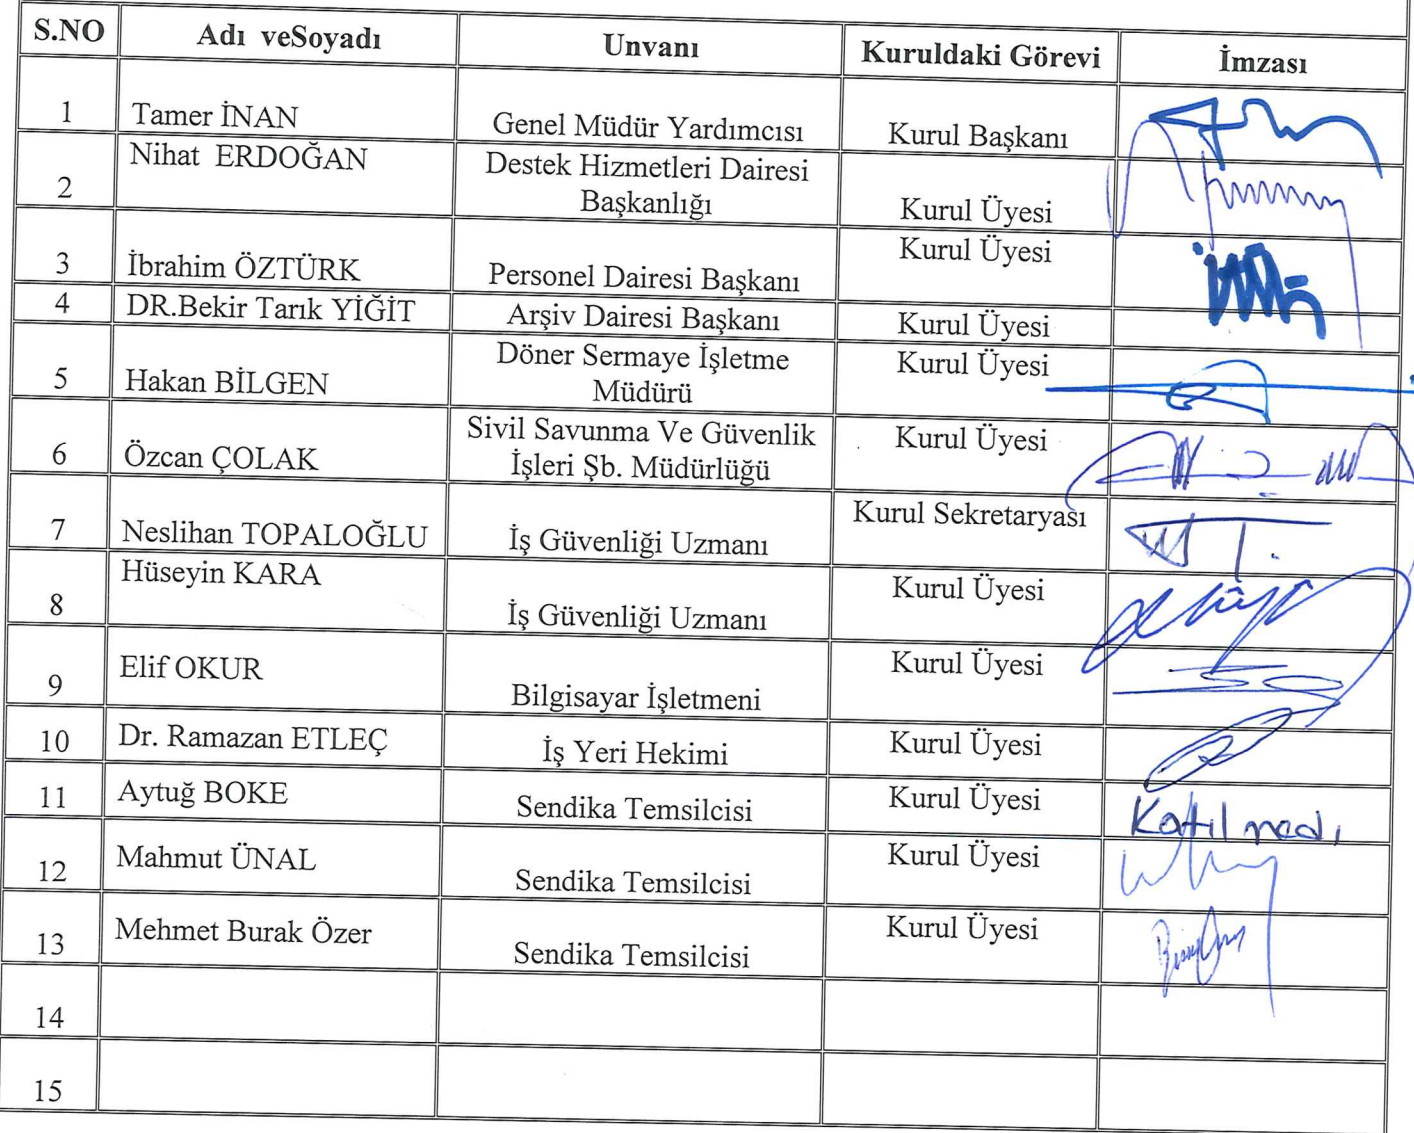 S.NO Adı veSoyadı Unvanı Kuruldaki Görevi İmzası
1 Tamer İNAN Genel Müdür Yardımcısı Kurul Başkanı
2 Nihat ERDOĞAN Destek Hizmetleri Dairesi
Başkanlığı Kurul Üyesi
3 İbrahim ÖZTÜRK Personel Dairesi Başkanı Kurul Üyesi
4 DR.Bekir Tarık YİĞİT Arşiv Dairesi Başkanı Kurul Üyesi
5 Hakan BİLGEN Döner Sermaye İşletme
Müdürü Kurul Üyesi
6 Özcan ÇOLAK Sivil Savunma Ve Güvenlik
İşleri Şb. Müdürlüğü Kurul Üyesi
7 Neslihan TOPALOĞLU İş Güvenliği Uzmanı Kurul Sekretaryası
8 Hüseyin KARA İş Güvenliği Uzmanı Kurul Üyesi
9 Elif OKUR Bilgisayar İşletmeni Kurul Üyesi
10 Dr. Ramazan ETLEÇ İş Yeri Hekimi Kurul Üyesi
11 Aytuğ BOKE Sendika Temsilcisi Kurul Üyesi Katılmadı
12 Mahmut ÜNAL Sendika Temsilcisi Kurul Üyesi
13 Mehmet Burak Özer Sendika Temsilcisi Kurul Üyesi
14
15